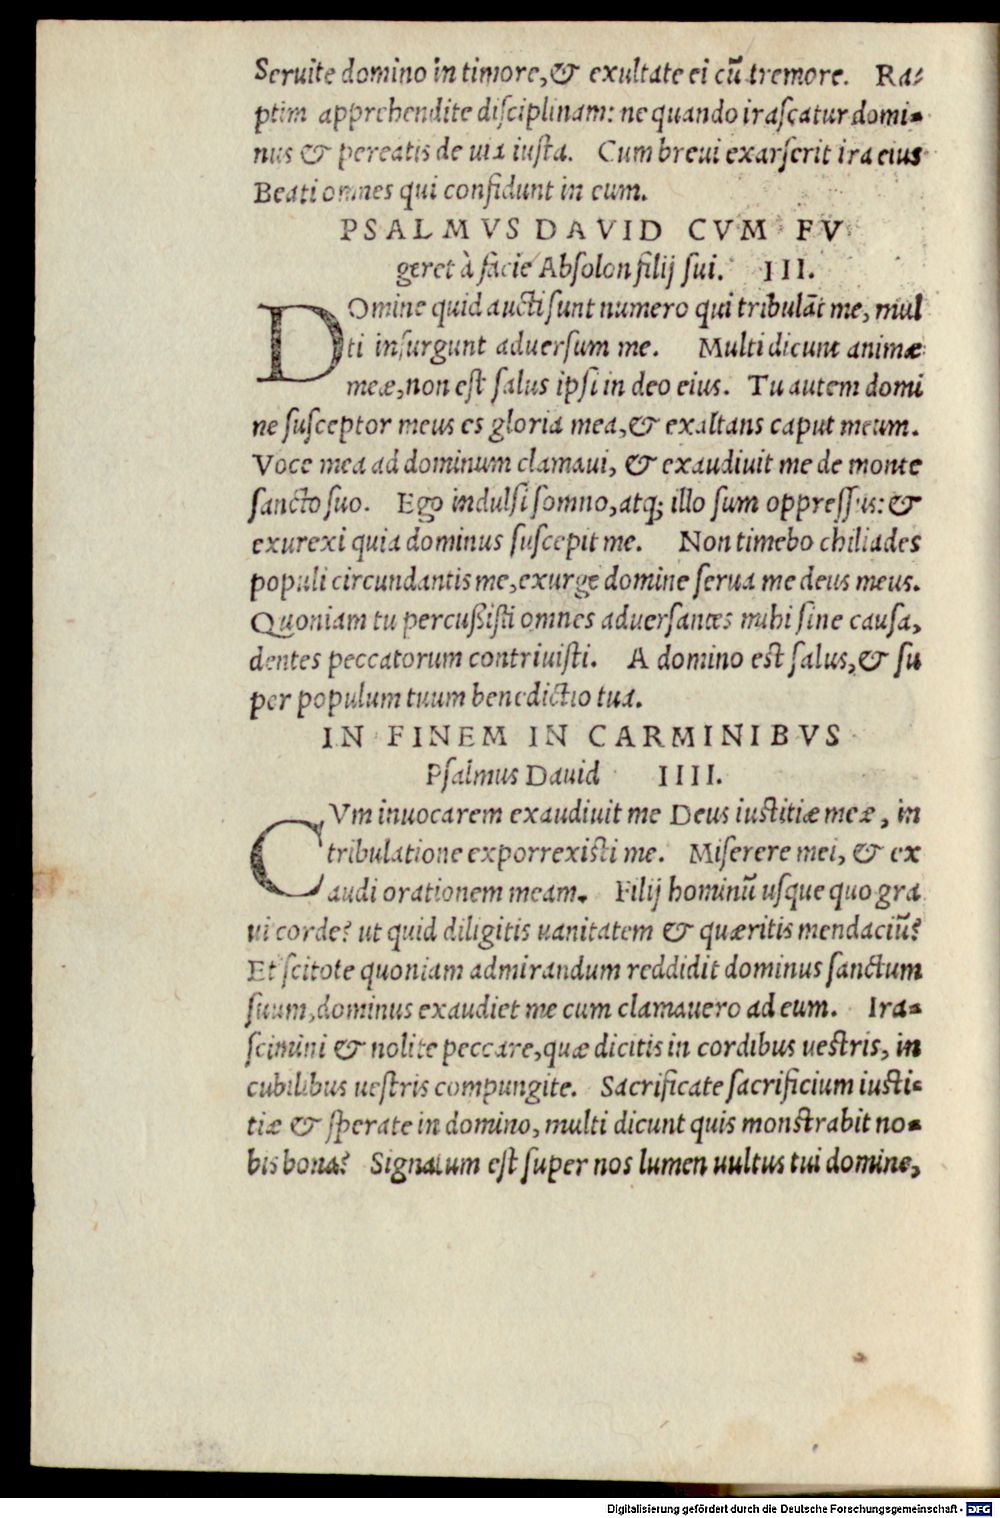 Seruite domino in timore, & exultate ei cū tremore. Ra-
ptim apprehendite disciplinam: ne quando irascatur domi-
nus & pereatis de uia iusta. Cum breui exarserit ira eius
Beati omnes qui confidunt in eum.
PSALMVS DAVID CVM FV
geret à facie Absolon filij sui. III.
DOmine quid aucti sunt numero qui tribulāt me, mul
ti insurgunt aduersum me. Multi dicunt animæ
meæ, non est salus ipsi in deo eius. Tu autem domi
ne susceptor meus es gloria mea, & exaltans caput meum.
Voce mea ad dominum clamaui, & exaudiuit me de monte
sancto suo. Ego indulsi somno, atq; illo sum oppressus: &
exurexi quia dominus suscepit me. Non timebo chiliades
populi circundantis me, exurge domine serua me deus meus.
Quoniam tu percußisti omnes aduersantes mihi sine causa,
dentes peccatorum contriuisti. A domino est salus, & su
per populum tuum benedictio tua.
IN FINEM IN CARMINIBVS
Psalmus Dauid IIII.
CVm inuocarem exaudiuit me Deus iustitiæ meæ, in
tribulatione exporrexisti me. Miserere mei, & ex
audi orationem meam. Filij hominū usque quo gra
ui corde? ut quid diligitis uanitatem & quæritis mendaciū?
Et scitote quoniam admirandum reddidit dominus sanctum
suum, dominus exaudiet me cum clamauero ad eum. Ira-
scimini & nolite peccare, quæ dicitis in cordibus uestris, in
cubilibus uestris compungite. Sacrificate sacrificium iusti-
tiæ & sperate in domino, multi dicunt quis monstrabit no-
bis bona? Signatum est super nos lumen uultus tui domine,
Digitalisierung gefördert durch die Deutsche Forschungsgemeinschaft - DFG